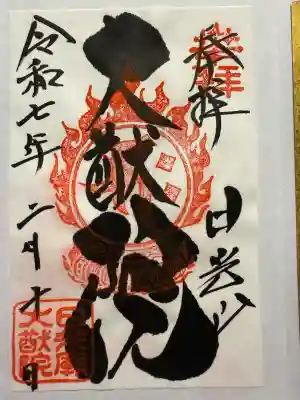 奉拝
日光山
大猷院
令和七年二月十七日
日光山
大猷院